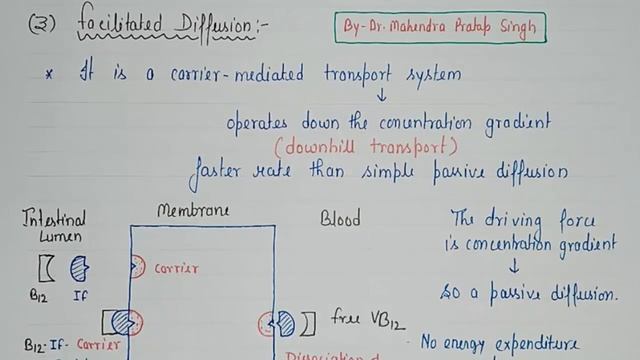 (3) facilitated Diffusion:-
By- Dr. Mahendra Pratap Singh
* It is a carrier-mediated transport system
↓
operates down the concentration gradient
(downhill transport)
faster rate than simple passive diffusion
Intestinal Lumen
Membrane
Blood
The driving force
is concentration gradient
↓
So a passive diffusion.
Carrier
B12
If
free VB12
No energy expenditure
B12-If-Carrier